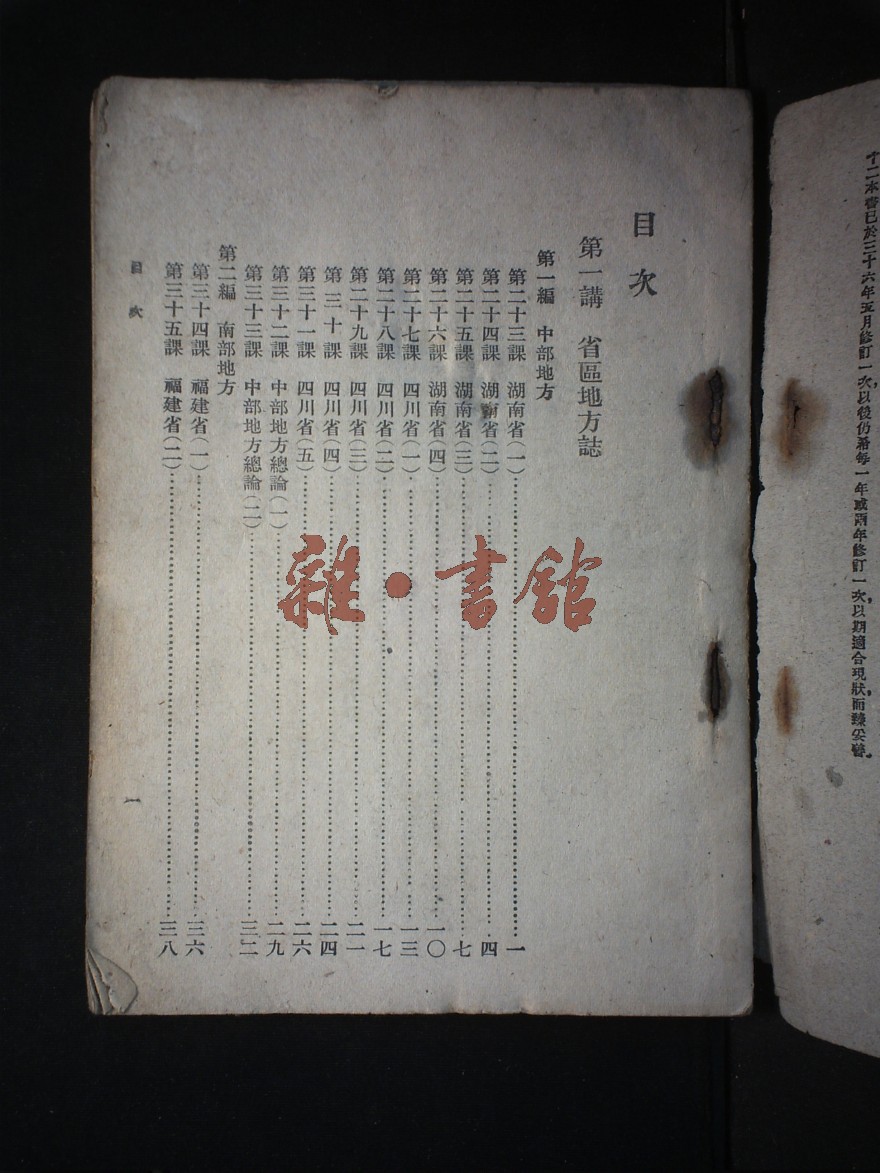 十二本書已於三十六年五月修訂一次，以後仍須每一年或兩年修訂一次，以期適合現狀，而臻妥善。
目次
第一講　省區地方誌
第一編　中部地方
第二十三課　湖南省(一)……一
第二十四課　湖南省(二)……四
第二十五課　湖南省(三)……七
第二十六課　湖南省(四)……一〇
第二十七課　四川省(一)……一三
第二十八課　四川省(二)……一七
第二十九課　四川省(三)……二一
第三十課　四川省(四)……二四
第三十一課　四川省(五)……二六
第三十二課　中部地方總論(一)……二九
第三十三課　中部地方總論(二)……三二
第二編　南部地方
第三十四課　福建省(一)……三六
第三十五課　福建省(二)……三八
目次
一
雜·書館